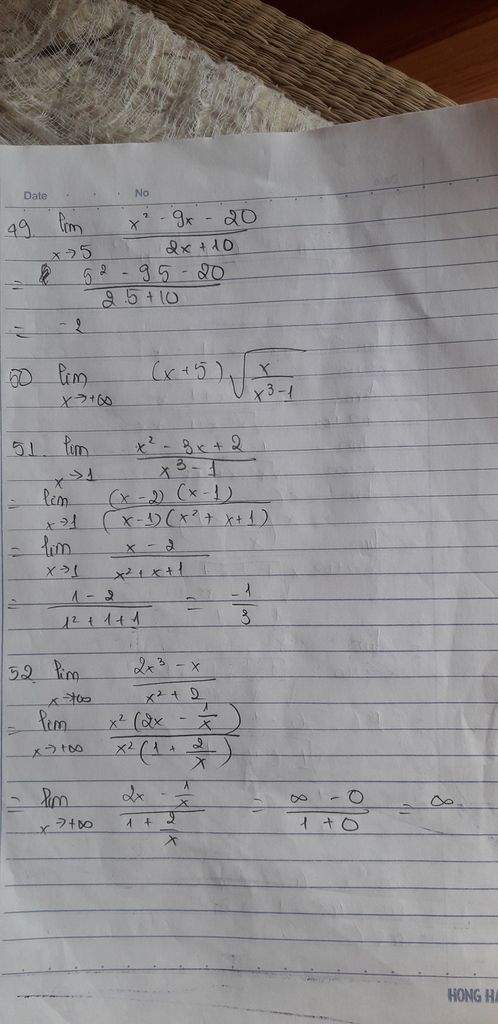 Date No
49. lim x→5 (x² - 9x - 20)/(2x + 10)
= (5² - 9 5 - 20)/(2 5 + 10)
= -2
50 lim x→+∞ (x + 5) √(x/(x³ - 1))
51. lim x→1 (x² - 3x + 2)/(x³ - 1)
= lim x→1 ((x - 2) (x - 1))/((x - 1) (x² + x + 1))
= lim x→1 (x - 2)/(x² + x + 1)
= (1 - 2)/(1² + 1 + 1) = -1/3
52. lim x→+∞ (2x³ - x)/(x² + 2)
= lim x→+∞ (x² (2x - 1/x))/(x² (1 + 2/x))
= lim x→+∞ (2x - 1/x)/(1 + 2/x) = (∞ - 0)/(1 + 0) = ∞